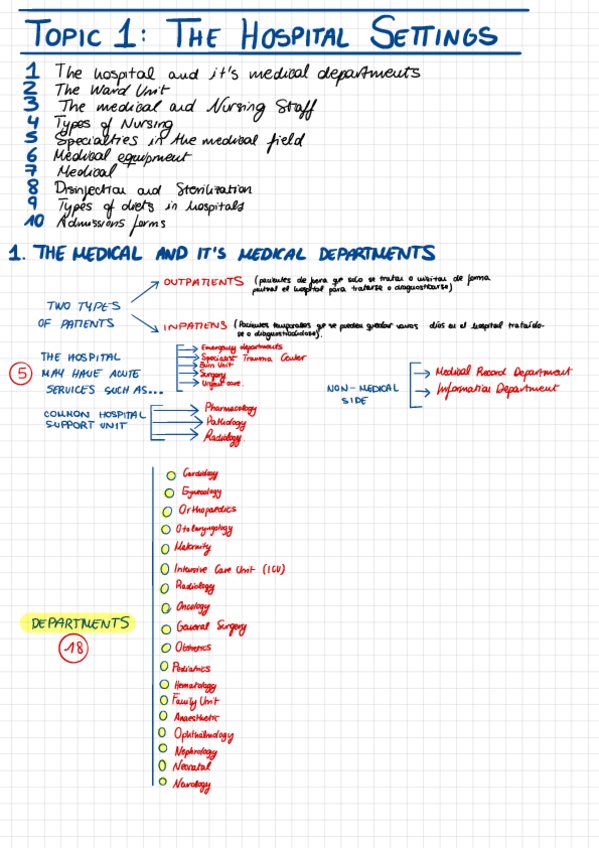 TOPIC 1: THE HOSPITAL SETTINGS
1 The hospital and it's medical departments
2 The Ward Unit
3 The medical and Nursing Staff
4 Types of Nursing
5 Specialties in the medical field
6 Medical equipment
7 Medical
8 Disinfection and Sterilization
9 Types of diets in hospitals
10 Admissions forms
1. THE MEDICAL AND IT'S MEDICAL DEPARTMENTS
TWO TYPES
OF PATIENTS
OUTPATIENTS (pacientes de fuera que solo se tratan o visitan de forma
puntual el hospital para tratarse o diagnosticarse)
INPATIENS (Pacientes temporales que se pueden quedar varios días en el hospital tratando-
se o diagnosticándose).
5
THE HOSPITAL
MAY HAVE ACUTE
SERVICES SUCH AS...
Emergency departments
Specialist Trauma Center
Burn Unit
Surgery
Urgent care.
NON-MEDICAL
SIDE
Medical Record Department
Information Department
COMMON HOSPITAL
SUPPORT UNIT
Pharmacology
Pathology
Radiology
DEPARTMENTS
18
Cardiology
Gynecology
Orthopaedics
Otolaryngology
Maternity
Intensive Care Unit (ICU)
Radiology
Oncology
General Surgery
Obstetrics
Pediatrics
Hematology
Family Unit
Anaesthetic
Ophthalmology
Nephrology
Neonatal
Neurology